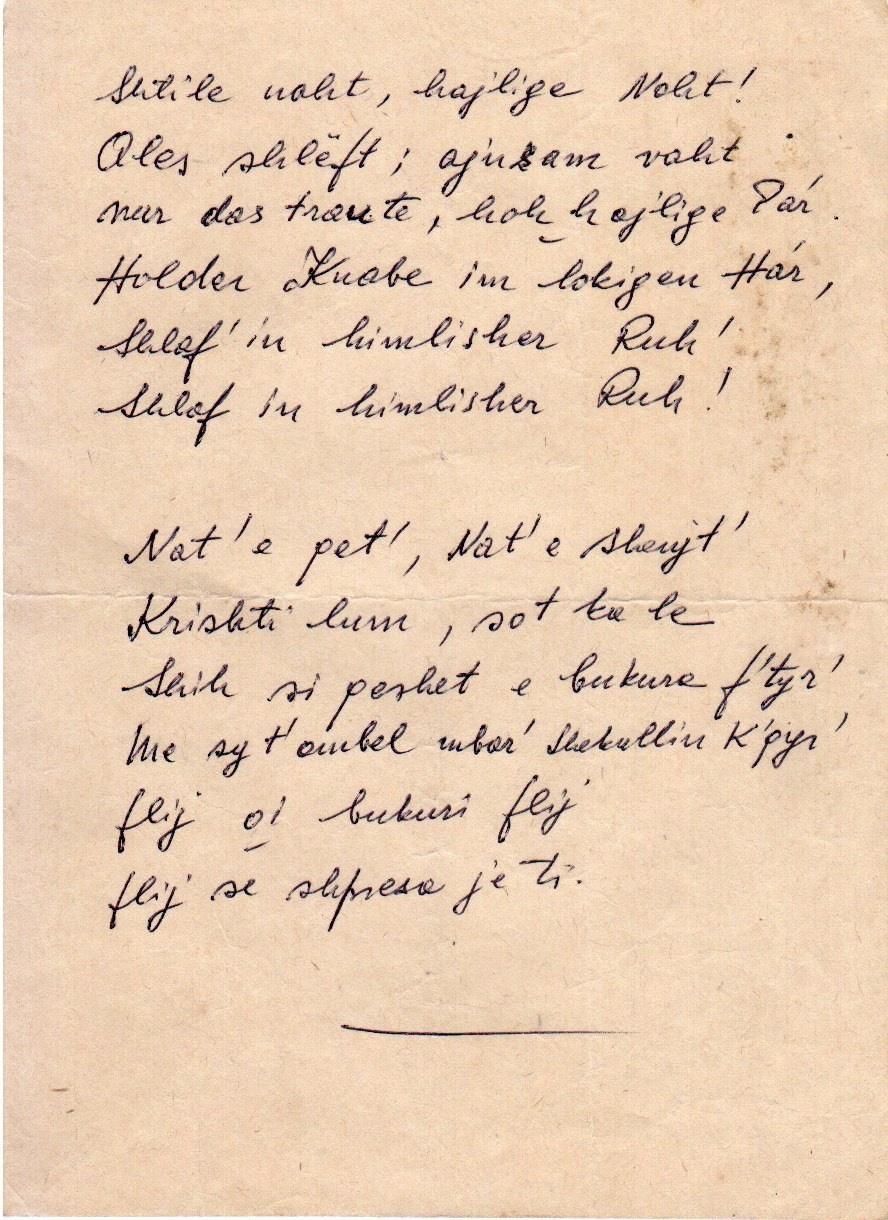 Shtile naht, hajlige Naht!
Ales shlëft; ajnsam vaht
nur das traute, hoh hajlige Pár.
Holder Knabe im lokigen Hár,
Shlaf' in himlisher Ruh!
Shlaf in himlisher Ruh!
Nat' e pet', Nat' e shenjt'
Krishti lum, sot ka le
Shih si peshet e bukura f'tyr'
Me sy t'ambel mbar' shekullin k'qyr'
flij oi bukuri flij
flij se shpresa je ti.